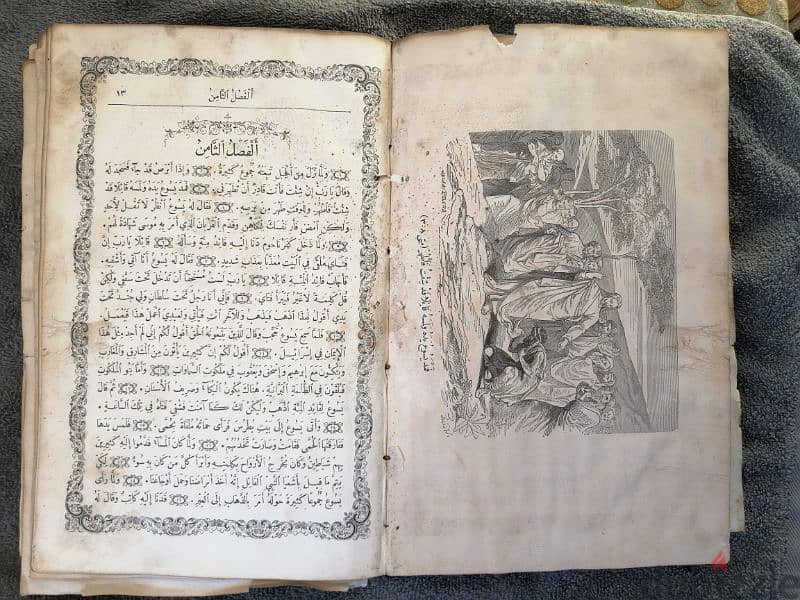 ١٣ اَلْفَصْلُ الثَّامِنُ
اَلْفَصْلُ الثَّامِنُ
وَلَمَّا نَزَلَ مِنَ الْجَبَلِ تَبِعَتْهُ جُمُوعٌ كَثِيرَةٌ وَإِذَا أَبْرَصُ قَدْ جَاءَ فَسَجَدَ لَهُ
وَقَالَ يَا رَبُّ إِنْ شِئْتَ فَأَنْتَ قَادِرٌ أَنْ تُطَهِّرَنِي فَمَدَّ يَسُوعُ يَدَهُ وَلَمَسَهُ قَائِلًا قَدْ
شِئْتُ فَاطْهُرْ وَلِلْوَقْتِ طَهُرَ مِنْ بَرَصِهِ فَقَالَ لَهُ يَسُوعُ اُنْظُرْ لَا تَقُلْ لِأَحَدٍ
وَلٰكِنِ امْضِ فَأَرِ نَفْسَكَ لِلْكَاهِنِ وَقَدِّمِ الْقُرْبَانَ الَّذِي أَمَرَ بِهِ مُوسَى شَهَادَةً لَهُمْ
وَلَمَّا دَخَلَ كَفَرْنَاحُومَ دَنَا إِلَيْهِ قَائِدُ مِئَةٍ وَسَأَلَهُ قَائِلًا يَا رَبُّ إِنَّ
فَتَايَ مُلْقًى فِي الْبَيْتِ مُعَذَّبًا بِعَذَابٍ شَدِيدٍ فَقَالَ لَهُ يَسُوعُ أَنَا آتِي وَأَشْفِيهِ
فَأَجَابَ قَائِدُ الْمِئَةِ قَائِلًا يَا رَبُّ لَسْتُ مُسْتَحِقًّا أَنْ تَدْخُلَ تَحْتَ سَقْفِي وَلٰكِنْ
قُلْ كَلِمَةً لَا غَيْرُ فَيَبْرَأَ فَتَايَ فَإِنِّي أَنَا رَجُلٌ تَحْتَ سُلْطَانٍ وَلِي جُنْدٌ تَحْتَ
يَدِي أَقُولُ لِهٰذَا اذْهَبْ فَيَذْهَبُ وَلِلْآخَرِ ائْتِ فَيَأْتِي وَلِعَبْدِي اعْمَلْ هٰذَا فَيَعْمَلُ
فَلَمَّا سَمِعَ يَسُوعُ تَعَجَّبَ وَقَالَ لِلَّذِينَ يَتْبَعُونَهُ الْحَقَّ أَقُولُ لَكُمْ إِنِّي لَمْ أَجِدْ مِثْلَ هٰذَا
الْإِيمَانِ فِي إِسْرَائِيلَ أَقُولُ لَكُمْ إِنَّ كَثِيرِينَ يَأْتُونَ مِنَ الْمَشَارِقِ وَالْمَغَارِبِ
وَيَتَّكِئُونَ مَعَ إِبْرَهِيمَ وَإِسْحٰقَ وَيَعْقُوبَ فِي مَلَكُوتِ السَّمَاوَاتِ وَأَمَّا بَنُو الْمَلَكُوتِ
فَيُلْقَوْنَ فِي الظُّلْمَةِ الْبَرَّانِيَّةِ هُنَاكَ يَكُونُ الْبُكَاءُ وَصَرِيفُ الْأَسْنَانِ ثُمَّ قَالَ
يَسُوعُ لِقَائِدِ الْمِئَةِ اذْهَبْ وَلْيَكُنْ لَكَ كَمَا آمَنْتَ فَشُفِيَ فَتَاهُ فِي تِلْكَ السَّاعَةِ
وَأَتَى يَسُوعُ إِلَى بَيْتِ بُطْرُسَ فَرَأَى حَمَاتَهُ مُلْقَاةً بِحُمَّى فَلَمَسَ يَدَهَا
فَفَارَقَتْهَا الْحُمَّى فَقَامَتْ وَصَارَتْ تَخْدُمُهُمْ وَلَمَّا كَانَ الْمَسَاءُ قَدَّمُوا إِلَيْهِ كَثِيرِينَ
بِهِمْ شَيَاطِينُ وَكَانَ يُخْرِجُ الْأَرْوَاحَ بِكَلِمَتِهِ وَأَبْرَأَ كُلَّ مَنْ كَانَ بِهِ سُوءٌ لِكَيْ
يَتِمَّ مَا قِيلَ بِأَشَعْيَا النَّبِيِّ الْقَائِلِ إِنَّهُ أَخَذَ أَمْرَاضَنَا وَحَمَلَ أَوْجَاعَنَا وَلَمَّا رَأَى
يَسُوعُ جُمُوعًا كَثِيرَةً حَوْلَهُ أَمَرَ بِالذَّهَابِ إِلَى الْعِبْرِ فَدَنَا إِلَيْهِ كَاتِبٌ وَقَالَ لَهُ
فمد يسوع يده ولمسه قائلا قد شئت فاطهر